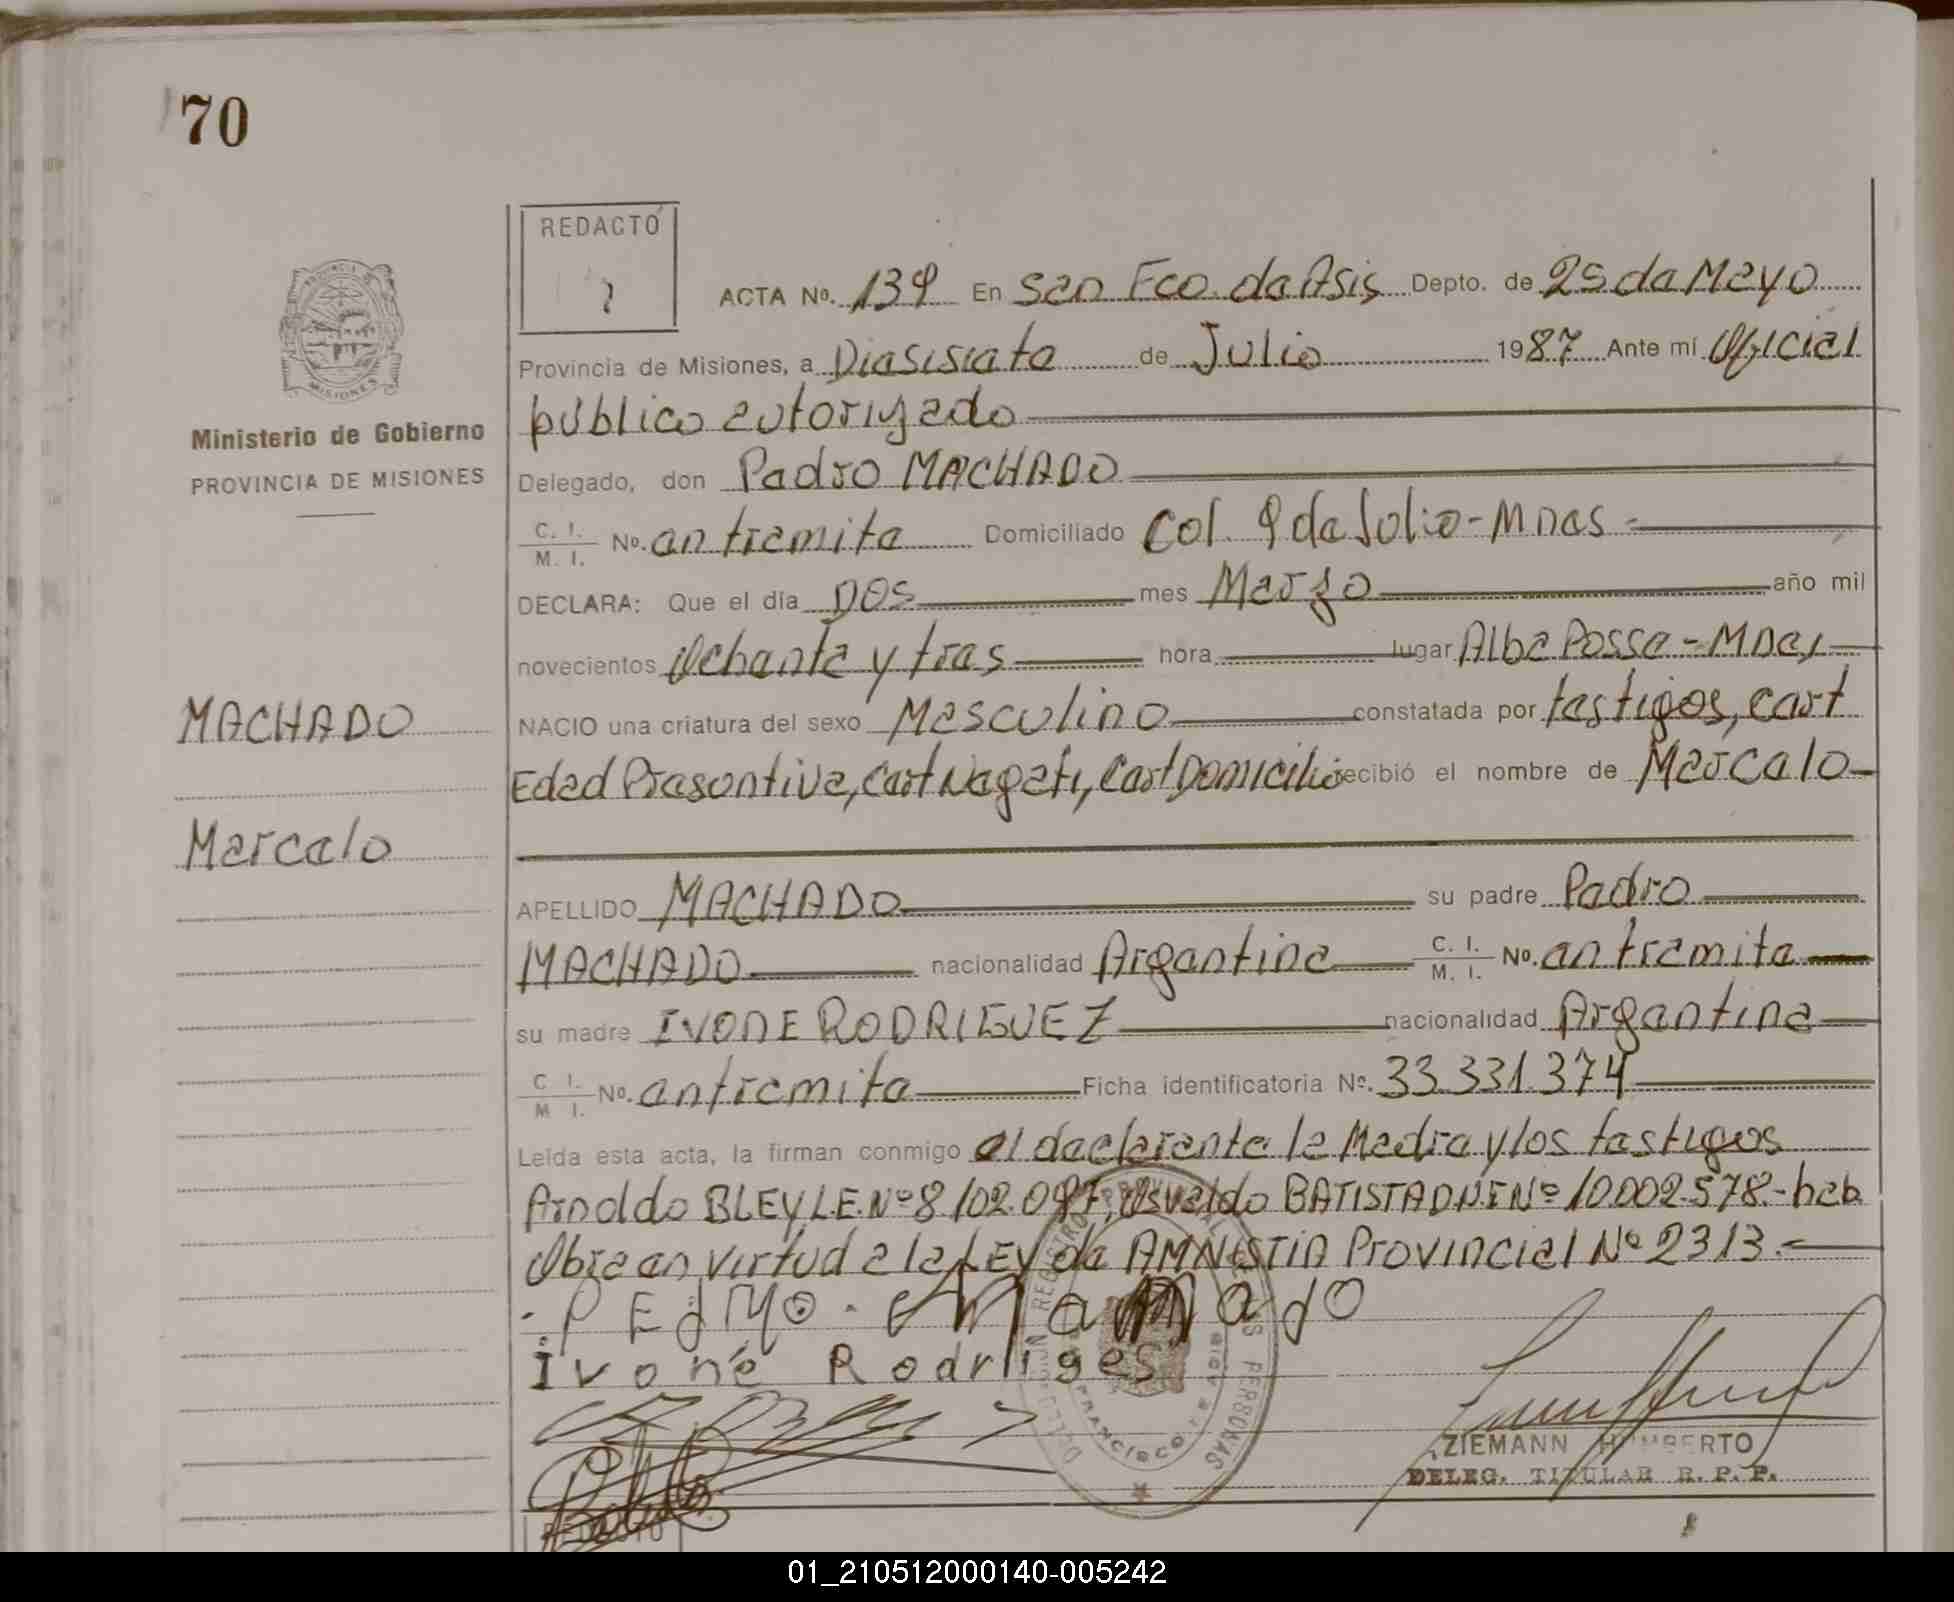 70
REDACTÓ
ACTA No. 139 En San Fco. de Asis Depto. de 25 de Mayo
Provincia de Misiones, a Diesisiete de Julio 1987 Ante mí Oficial
público autorizado
Ministerio de Gobierno
PROVINCIA DE MISIONES
Delegado, don Pedro MACHADO
C. I. / M. I. No. en tramite Domiciliado Col. 9 de Julio - Mnes -
DECLARA: Que el día Dos mes Marzo año mil
novecientos Ochenta y tres hora lugar Alba Posse - Mnes
MACHADO
NACIO una criatura del sexo Masculino constatada por testigos, Cert
Edad Presontiva, Cert Negati, Cert Domicilio recibió el nombre de Marcelo
Marcelo
APELLIDO MACHADO su padre Pedro
MACHADO nacionalidad Argentina C. I. / M. I. No. en tramite
su madre IVONE RODRIGUEZ nacionalidad Argentina
C. I. / M. I. No. en tramite Ficha identificatoria No. 33.331.374
Leída esta acta, la firman conmigo el declarante la Madre y los testigos
Arnoldo BLEY L.E. Nº 8.102.097, Osvaldo BATISTA D.N.I Nº 10.002.578.-
Obra en virtud a la LEY de AMNISTIA Provincial Nº 2313.-
Ivone Rodriges
REGISTRO PROVINCIAL DE LAS PERSONAS
FRANCISCO DE ASIS
ZIEMANN HUMBERTO
DELEG. TITULAR R. P. P.
REDACTÓ
01_210512000140-005242